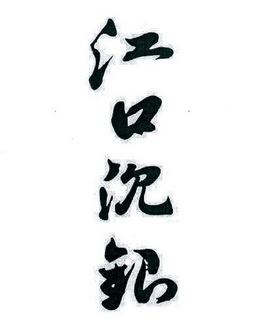 江口沉銀